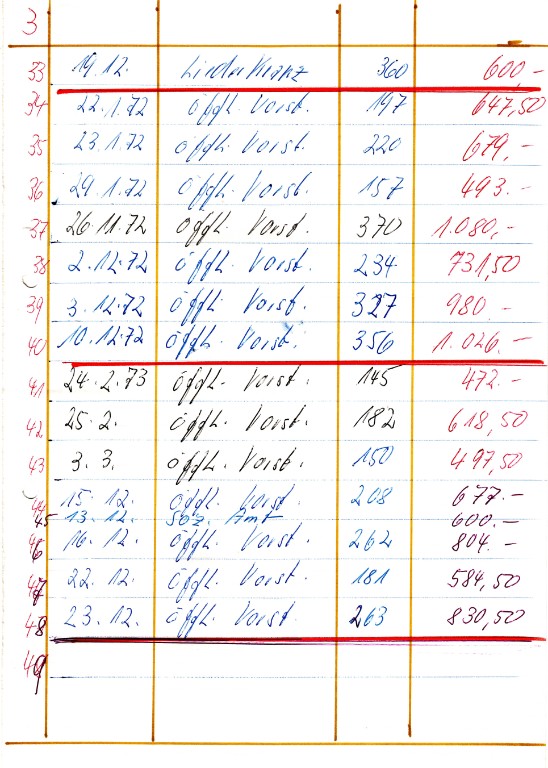 3
33 19.12. Liederkranz 360 600,-
34 22.1.72 öffh. Vorst. 197 647,50
35 23.1.72 öffh. Vorst. 220 679,-
36 29.1.72 öffh. Vorst. 157 493.-
37 26.11.72 öffh. Vorst. 370 1.080,-
38 2.12.72 öffh. Vorst. 234 731,50
39 3.12.72 öffh. Vorst. 327 980.-
40 10.12.72 öffh. Vorst. 356 1.026.-
41 24.2.73 öffh. Vorst. 145 472.-
42 25.2. öffh. Vorst. 182 618,50
43 3.3. öffh. Vorst. 150 497,50
44 15.12. öffh. Vorst. 208 677.-
45 13.12. Soz. Amt 600.-
46 16.12. öffh. Vorst. 262 804.-
47 22.12. öffh. Vorst. 181 584,50
48 23.12. öffh. Vorst. 263 830,50
49